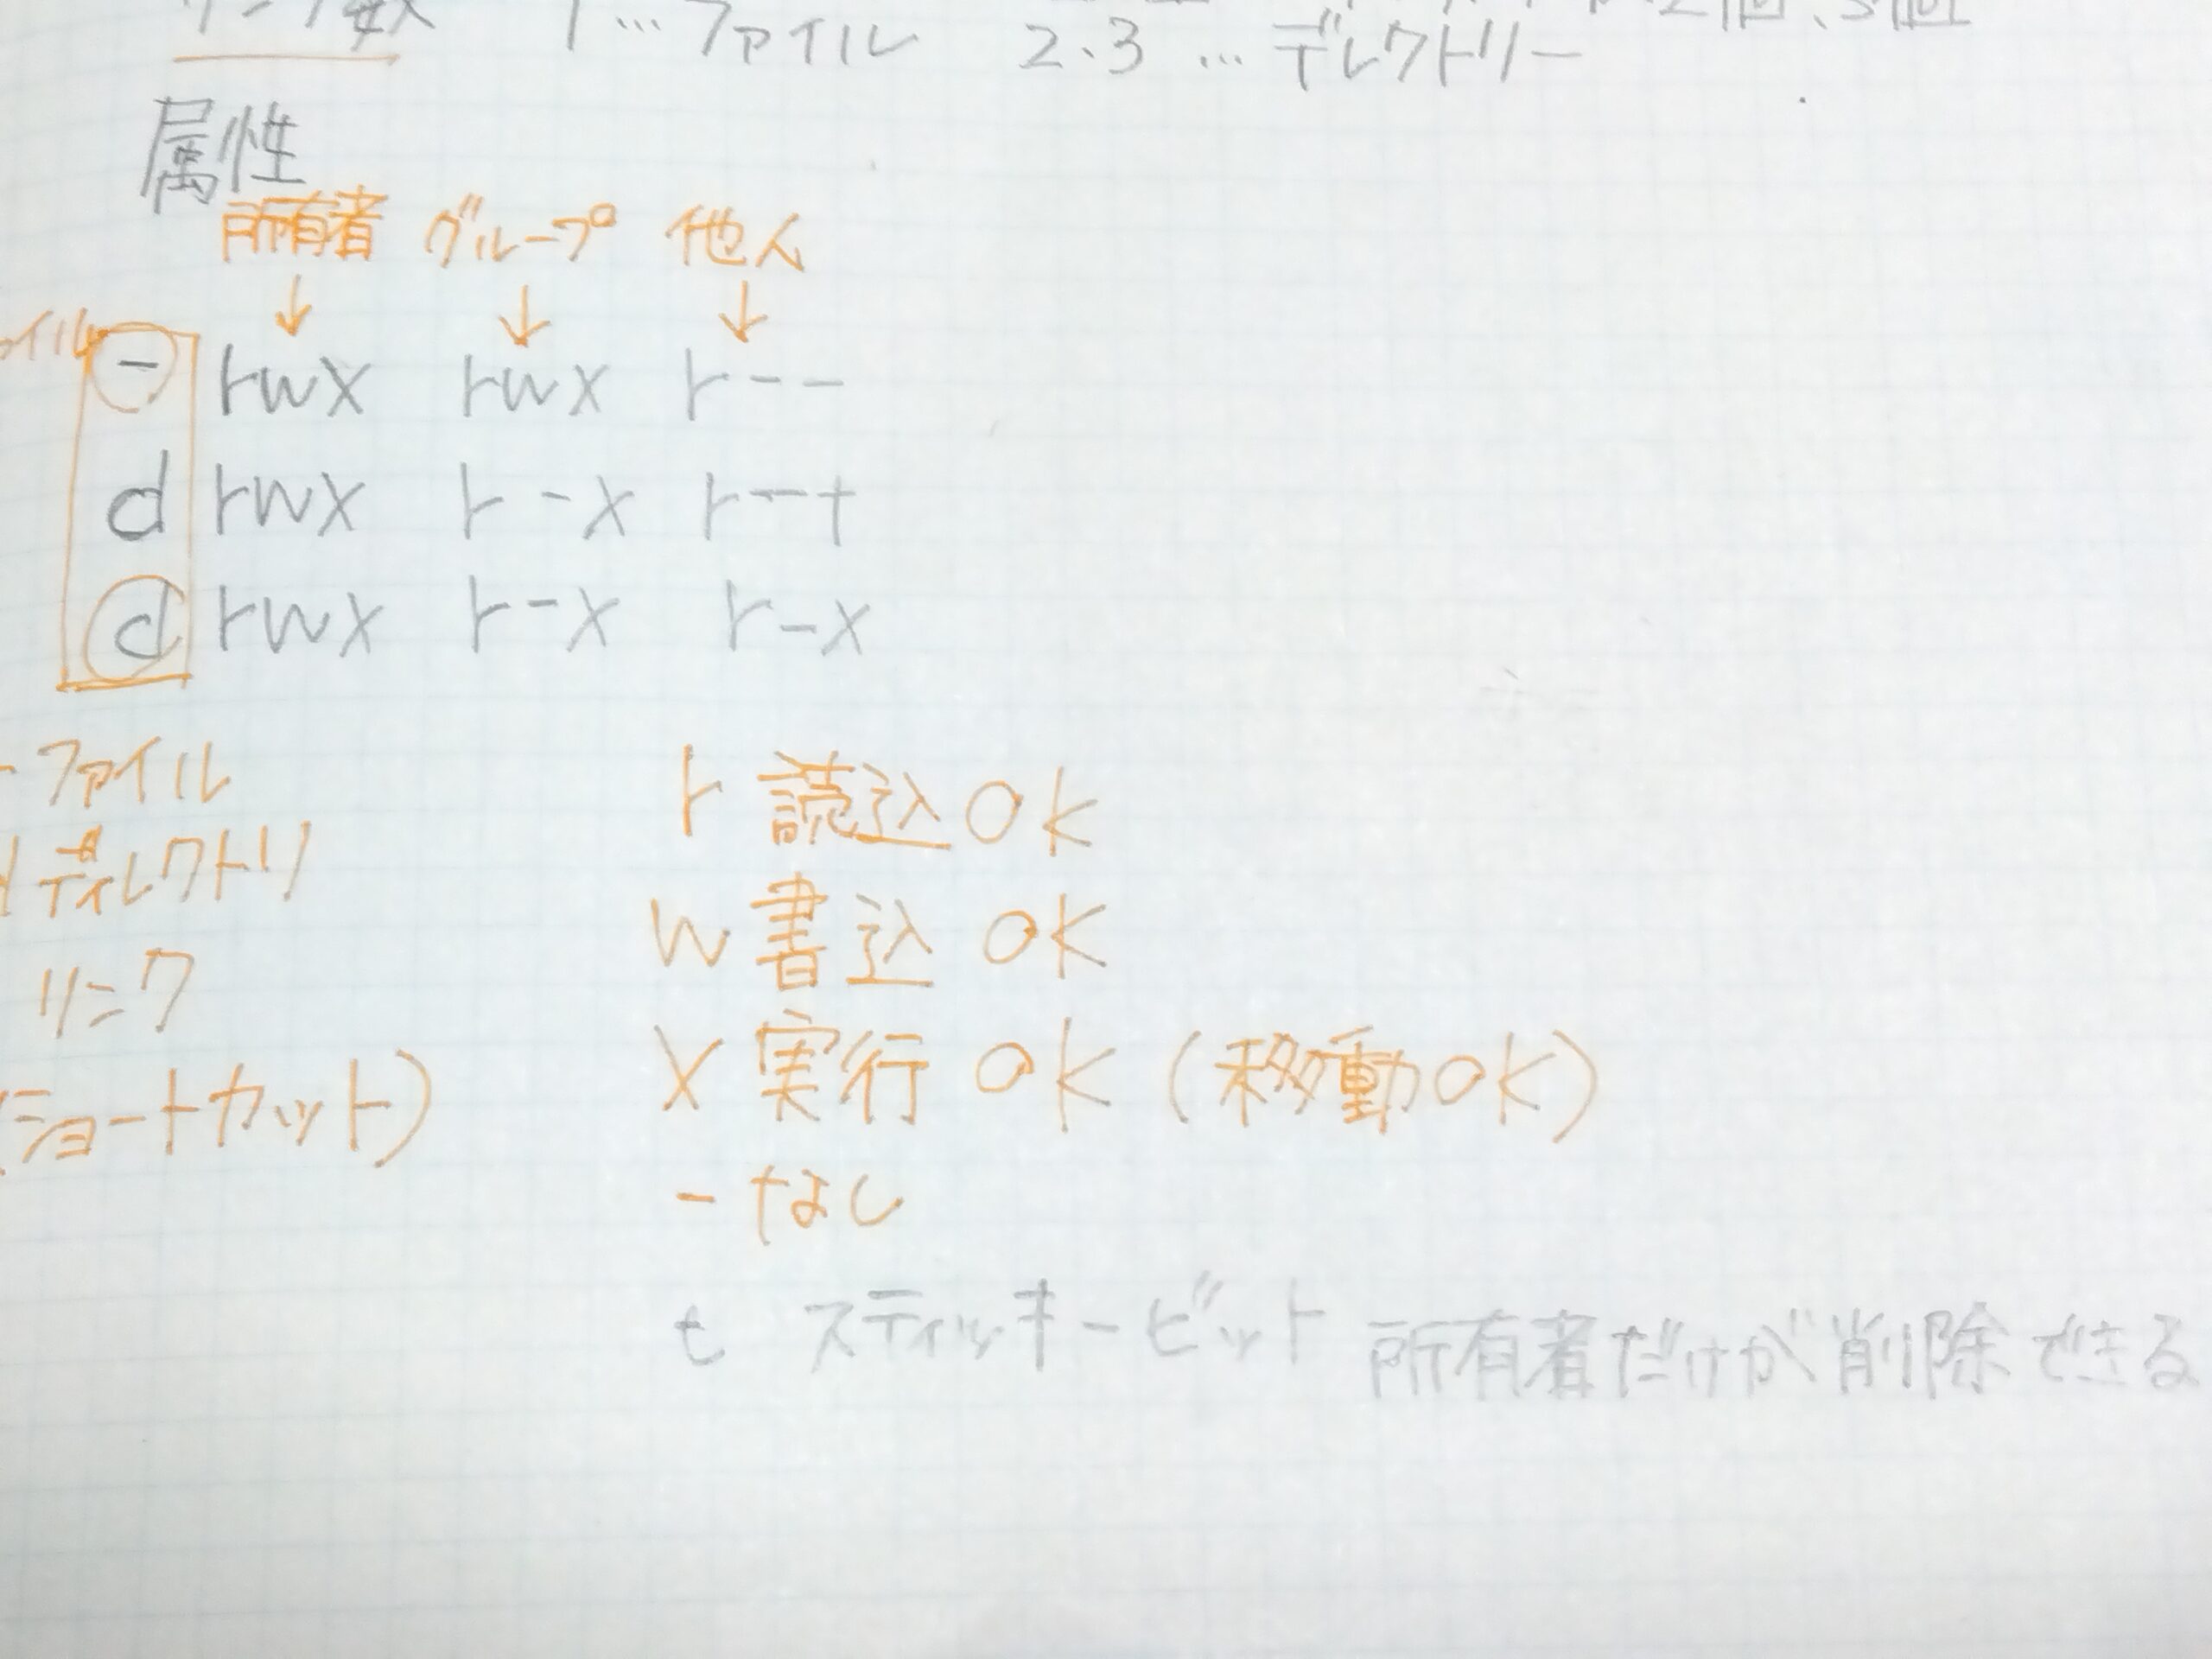 リンク数 1…ファイル 2、3…デレクトリー
属性
所有者 グループ 他人
↓ ↓ ↓
イル
- rwx rwx r--
d rwx r-x r-t
d rwx r-x r-x
- ファイル
d ディレクトリ
リンク
(ショートカット)
r 読込OK
w 書込OK
x 実行OK(移動OK)
- なし
t スティッキービット 所有者だけが削除できる